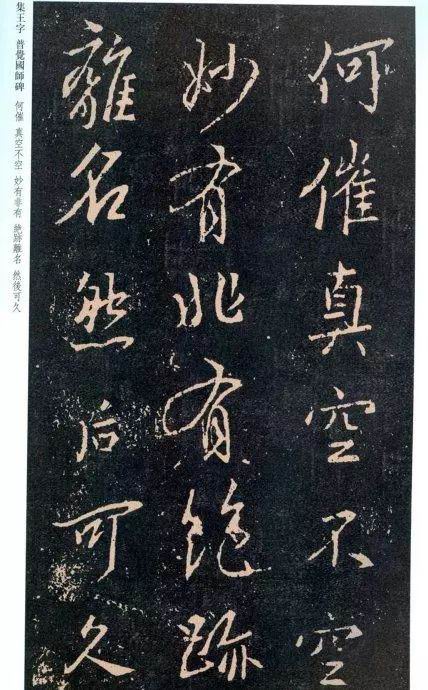 集王字 普覺國師碑 何催 真空不空 妙有非有 絶跡離名 然後可久
何催真空不空
妙有非有絶跡
離名然后可久